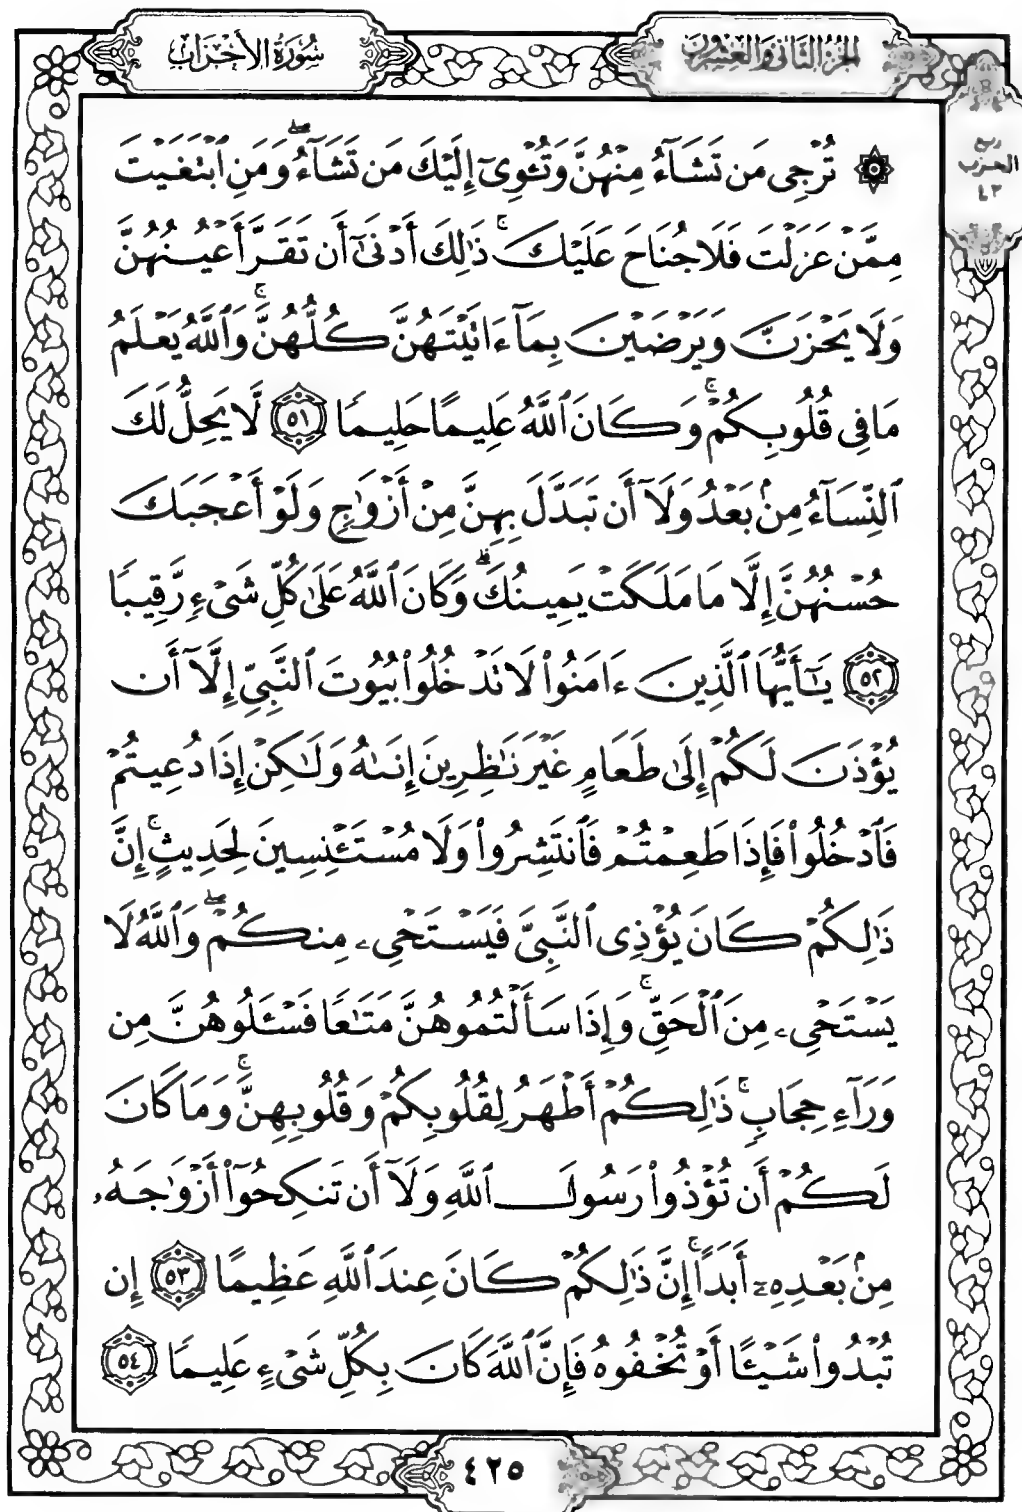 الجزء الثاني والعشرون
سورة الأحزاب
ربع
الحزب
٤٣
۞ تُرْجِى مَن تَشَآءُ مِنْهُنَّ وَتُـْٔوِىٓ إِلَيْكَ مَن تَشَآءُۖ وَمَنِ ٱبْتَغَيْتَ
مِمَّنْ عَزَلْتَ فَلَا جُنَاحَ عَلَيْكَۚ ذَٰلِكَ أَدْنَىٰٓ أَن تَقَرَّ أَعْيُنُهُنَّ
وَلَا يَحْزَنَّ وَيَرْضَيْنَ بِمَآ ءَاتَيْتَهُنَّ كُلُّهُنَّۚ وَٱللَّهُ يَعْلَمُ
مَا فِى قُلُوبِكُمْۚ وَكَانَ ٱللَّهُ عَلِيمًا حَلِيمًا ٥١ لَّا يَحِلُّ لَكَ
ٱلنِّسَآءُ مِنۢ بَعْدُ وَلَآ أَن تَبَدَّلَ بِهِنَّ مِنْ أَزْوَٰجٍ وَلَوْ أَعْجَبَكَ
حُسْنُهُنَّ إِلَّا مَا مَلَكَتْ يَمِينُكَۗ وَكَانَ ٱللَّهُ عَلَىٰ كُلِّ شَىْءٍ رَّقِيبًا
٥٢ يَٰٓأَيُّهَا ٱلَّذِينَ ءَامَنُوا۟ لَا تَدْخُلُوا۟ بُيُوتَ ٱلنَّبِىِّ إِلَّآ أَن
يُؤْذَنَ لَكُمْ إِلَىٰ طَعَامٍ غَيْرَ نَٰظِرِينَ إِنَىٰهُ وَلَٰكِنْ إِذَا دُعِيتُمْ
فَٱدْخُلُوا۟ فَإِذَا طَعِمْتُمْ فَٱنتَشِرُوا۟ وَلَا مُسْتَـْٔنِسِينَ لِحَدِيثٍۚ إِنَّ
ذَٰلِكُمْ كَانَ يُؤْذِى ٱلنَّبِىَّ فَيَسْتَحْىِۦ مِنكُمْۖ وَٱللَّهُ لَا
يَسْتَحْىِۦ مِنَ ٱلْحَقِّۚ وَإِذَا سَأَلْتُمُوهُنَّ مَتَٰعًا فَسْـَٔلُوهُنَّ مِن
وَرَآءِ حِجَابٍۚ ذَٰلِكُمْ أَطْهَرُ لِقُلُوبِكُمْ وَقُلُوبِهِنَّۚ وَمَا كَانَ
لَكُمْ أَن تُؤْذُوا۟ رَسُولَ ٱللَّهِ وَلَآ أَن تَنكِحُوٓا۟ أَزْوَٰجَهُۥ
مِنۢ بَعْدِهِۦٓ أَبَدًاۚ إِنَّ ذَٰلِكُمْ كَانَ عِندَ ٱللَّهِ عَظِيمًا ٥٣ إِن
تُبْدُوا۟ شَيْـًٔا أَوْ تُخْفُوهُ فَإِنَّ ٱللَّهَ كَانَ بِكُلِّ شَىْءٍ عَلِيمًا ٥٤
٤٢٥